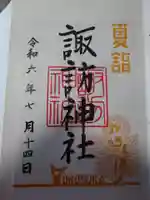 夏詣
諏訪神社
令和六年七月十四日